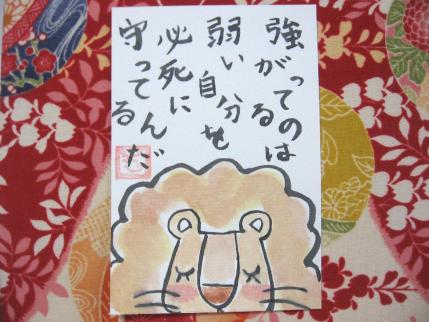 強がってるのは
弱い自分を
必死に
守ってるんだ